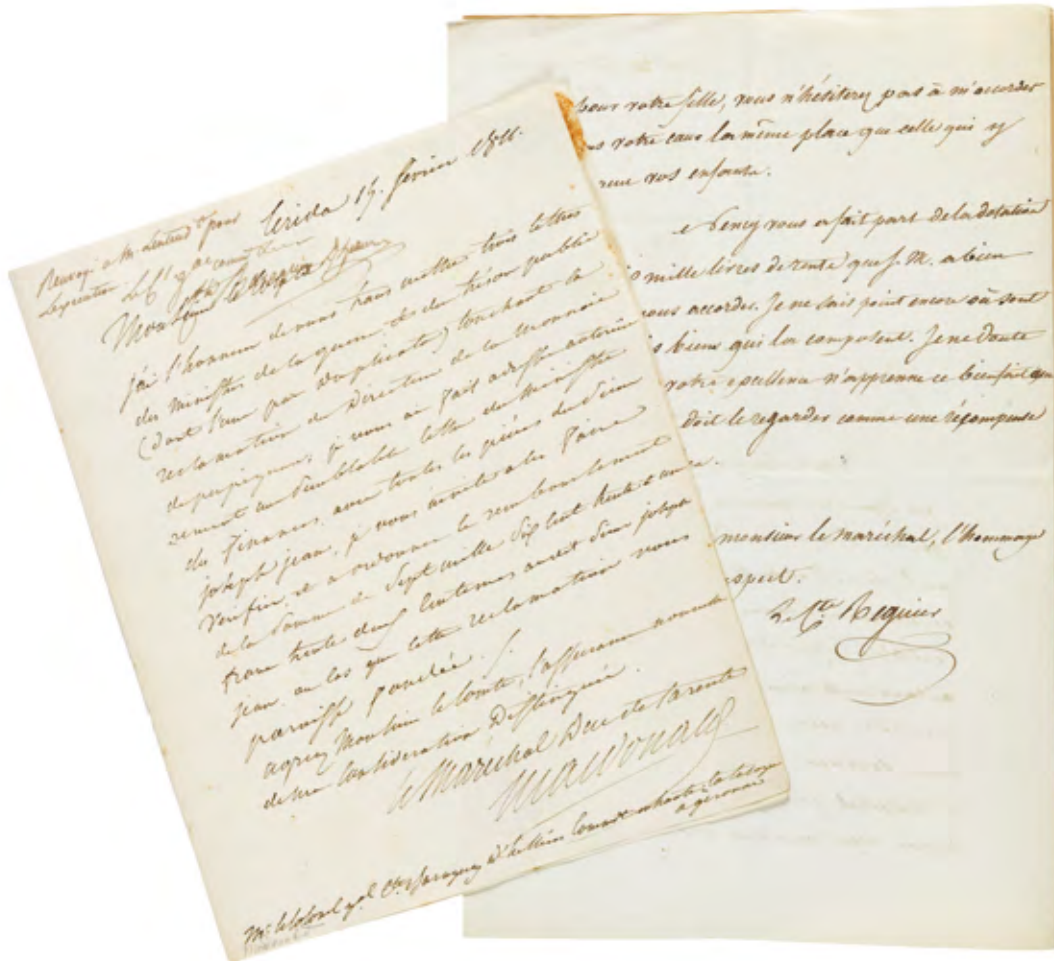 Lerida 15. février 1811.
Renvoyé à Mr
Monsieur le
j'ai l'honneur de vous transmettre trois lettres
des ministres de la guerre et du trésor public
(dont l'une par duplicata) touchant la
reclamation du Directeur de la monnaie
de perpignan, je vous ai fait adresser
une semblable lettre du ministre
des finances, avec toutes les pièces du Sieur
joseph jean, je vous invite à les faire
verifier, et a ordonner le remboursement
de la somme de Sept mille Sept Cent trente et
francs trente deux Centimes audit Sieur joseph
jean, au cas que cette reclamation vous
paroisse fondée.
agréez Monsieur le Comte, l'assurance
de ma Consideration Distinguée.
le Maréchal Duc de tarente
Macdonald
Mr. le Colonel gal Cte Baraguey d'hilliers Commandt la haute Catalogne
a gerone
pour votre fille, vous n'hésiterez pas à m'accorder
votre cœur la même place que celle qui y
vos enfants.
Nency vous a fait part de la dotation
mille livres de rente que S. M. a bien
nous accorder. Je ne sais point encore où sont
biens qui la composent. Je ne doute
votre excellence n'apprenne ce bienfait que
doit le regarder comme une récompense
monsieur le maréchal, l'hommage
respect.
Le Cte Regnier